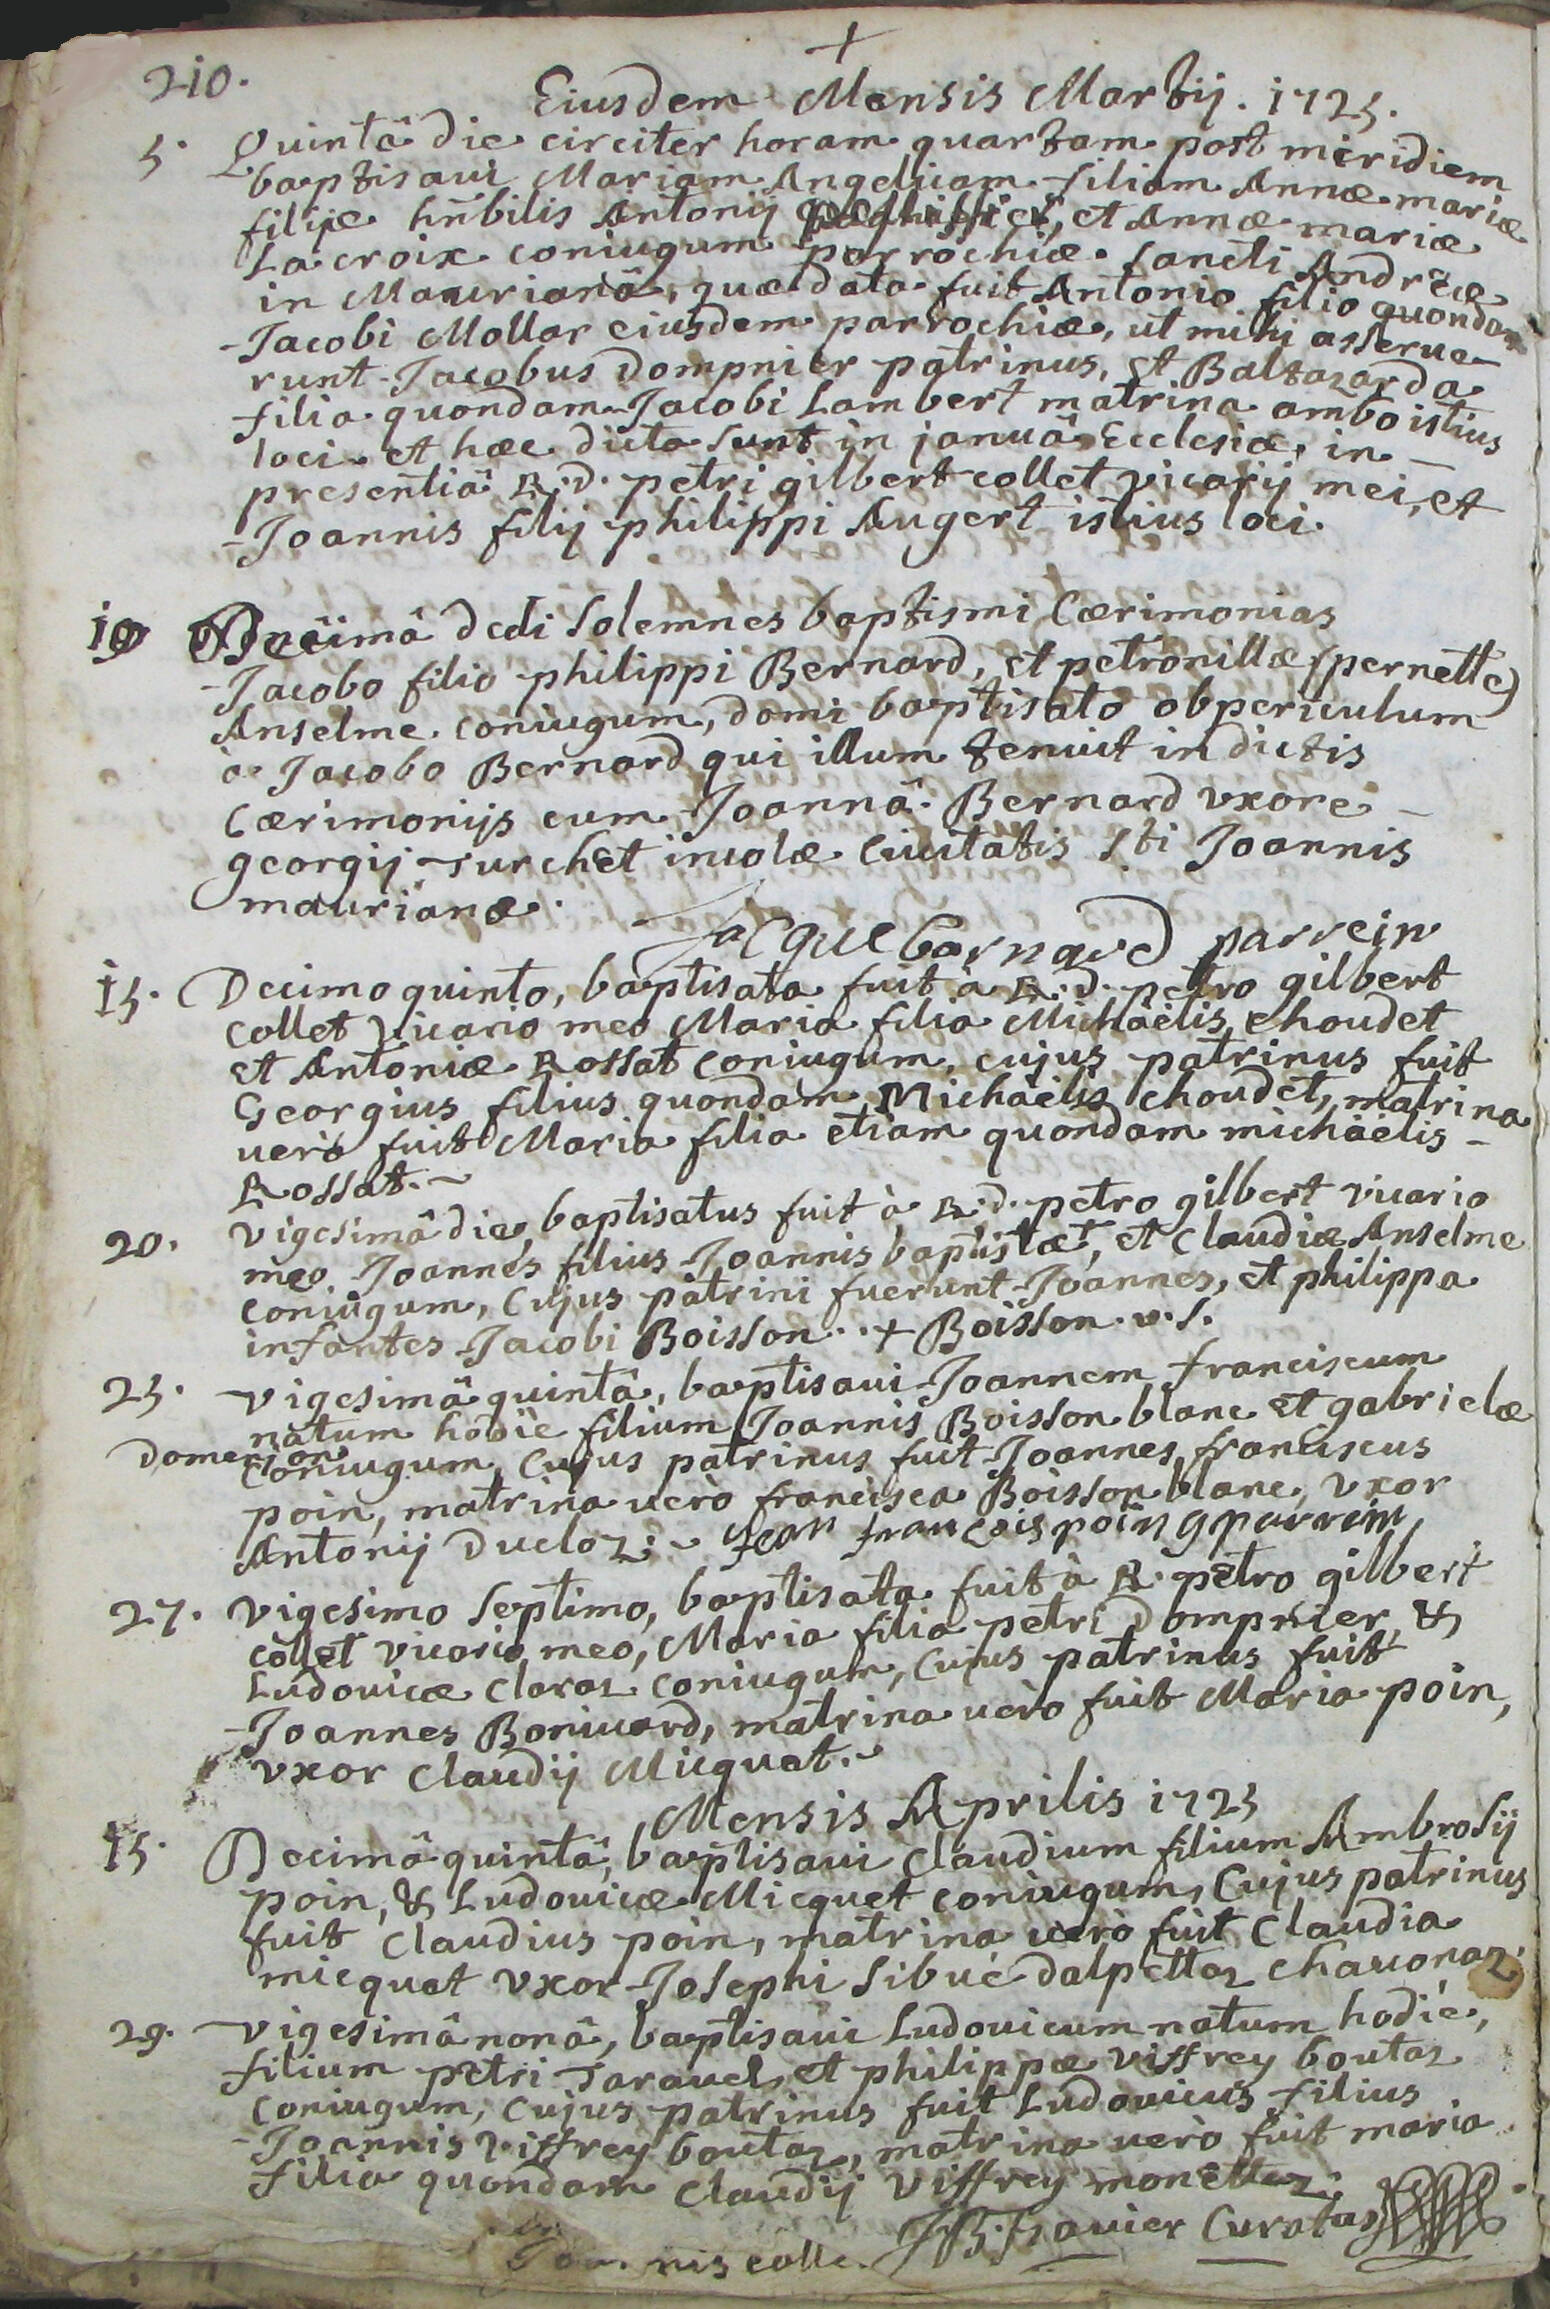 +
210.
Eiusdem Mensis Martij. 1725.
5. Quintâ die circiter horam quartam post meridiem
baptisaui Mariam Angelicam filiam Annæ mariæ
filiæ hñbilis Antonij et Annæ mariæ
Lacroix coniugum parrochiæ sancti Andreæ
in Maurianâ, quæ data fuit Antonio filio quondam
Jacobi Mollar eiusdem parrochiæ, ut mihi asserue-
runt Jacobus Dompnier patrinus, et Baltazarda
filia quondam Jacobi Lambert matrina ambo istius
loci. et hæc dicta sunt in januâ Ecclesiæ, in
presentiâ R.D. petri gilbert collet vicarij mei, et
Joannis filij philippi Augert istius loci.
10 Decimâ dedi solemnes baptismi Cærimonias
Jacobo filio philippi Bernard, et petronillæ (pernette)
Anselme coniugum, domi baptisato ob periculum
à Jacobo Bernard qui illum tenuit in dictis
Cærimonijs cum Joannâ Bernard vxore
georgij Turchet incolæ Ciuitatis Sti Joannis
maurianæ.
Jacque barnard parrein
15. Decimo quinto, baptisata fuit à R.D. petro gilbert
collet vicario meo Maria filia Michaëlis choudet
et Antoniæ Rossat coniugum, cujus patrinus fuit
Georgius filius quondam Michaëlis choudet, matrina
uerò fuit Maria filia etiam quondam michaëlis
Rossat.
20. Vigesimâ die, baptisatus fuit à R.D. petro gilbert vicario
meo Joannes filius Joannis baptistæ, et Claudiæ Anselme
coniugum, Cujus patrini fuerunt Joannes, et philippa
infantes Jacobi Boisson.. + Boisson. v.s.
25. Vigesimâ quintâ, baptisaui Joannem franciscum
natum hodie filium Joannis Boisson blanc et gabrielæ
Domenjon coniugum, Cujus patrinus fuit Joannes franciscus
poin, matrina uerò francisca Boisson blanc, vxor
Antonij Ducloz. Jean françois poin parrein
27. Vigesimo septimo, baptisata fuit à R. petro gilbert
collet vicario meo, Maria filia petri Dompnier, &
Ludouicæ Claraz coniugum, Cujus patrinus fuit
Joannes Boniuard, matrina uerò fuit Maria poin,
vxor Claudij Micquet.
Mensis Aprilis 1725
15. Decimâ quintâ, baptisaui Claudium filium Ambrosij
poin, & Ludouicæ Micquet coniugum, Cujus patrinus
fuit Claudius poin, matrina uerò fuit Claudia
micquet vxor Josephi Sibué dalpettaz chauonaz.
29. Vigesimâ nonâ, baptisaui Ludouicum natum hodiè,
filium petri Tarauel, et philippæ Viffrey boutaz
coniugum, Cujus patrinus fuit Ludouicus filius
Joannis Viffrey boutaz, matrina uerò fuit maria
filia quondam Claudij Viffrey monettaz.
Curatus
colle